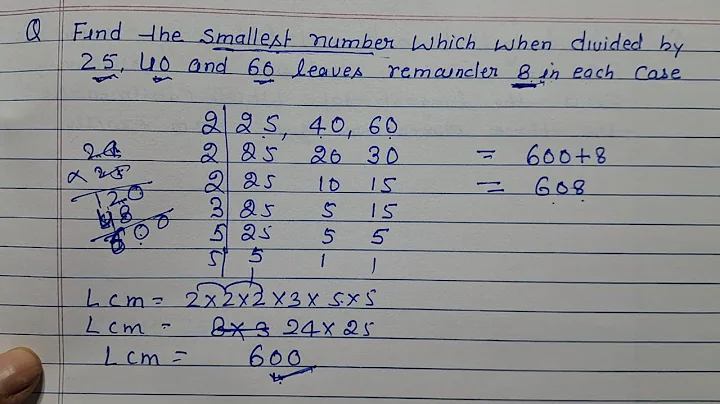 Q Find the smallest number which when divided by
25, 40 and 60 leaves remainder 8 in each case
2 25, 40, 60
2 25 20 30 = 600+8
2 25 10 15 = 608
3 25 5 15
5 25 5 5
5 5 1 1
1
24
x 25
120
48
600
Lcm = 2×2×2×3×5×5
Lcm = 8×3 24×25
Lcm = 600